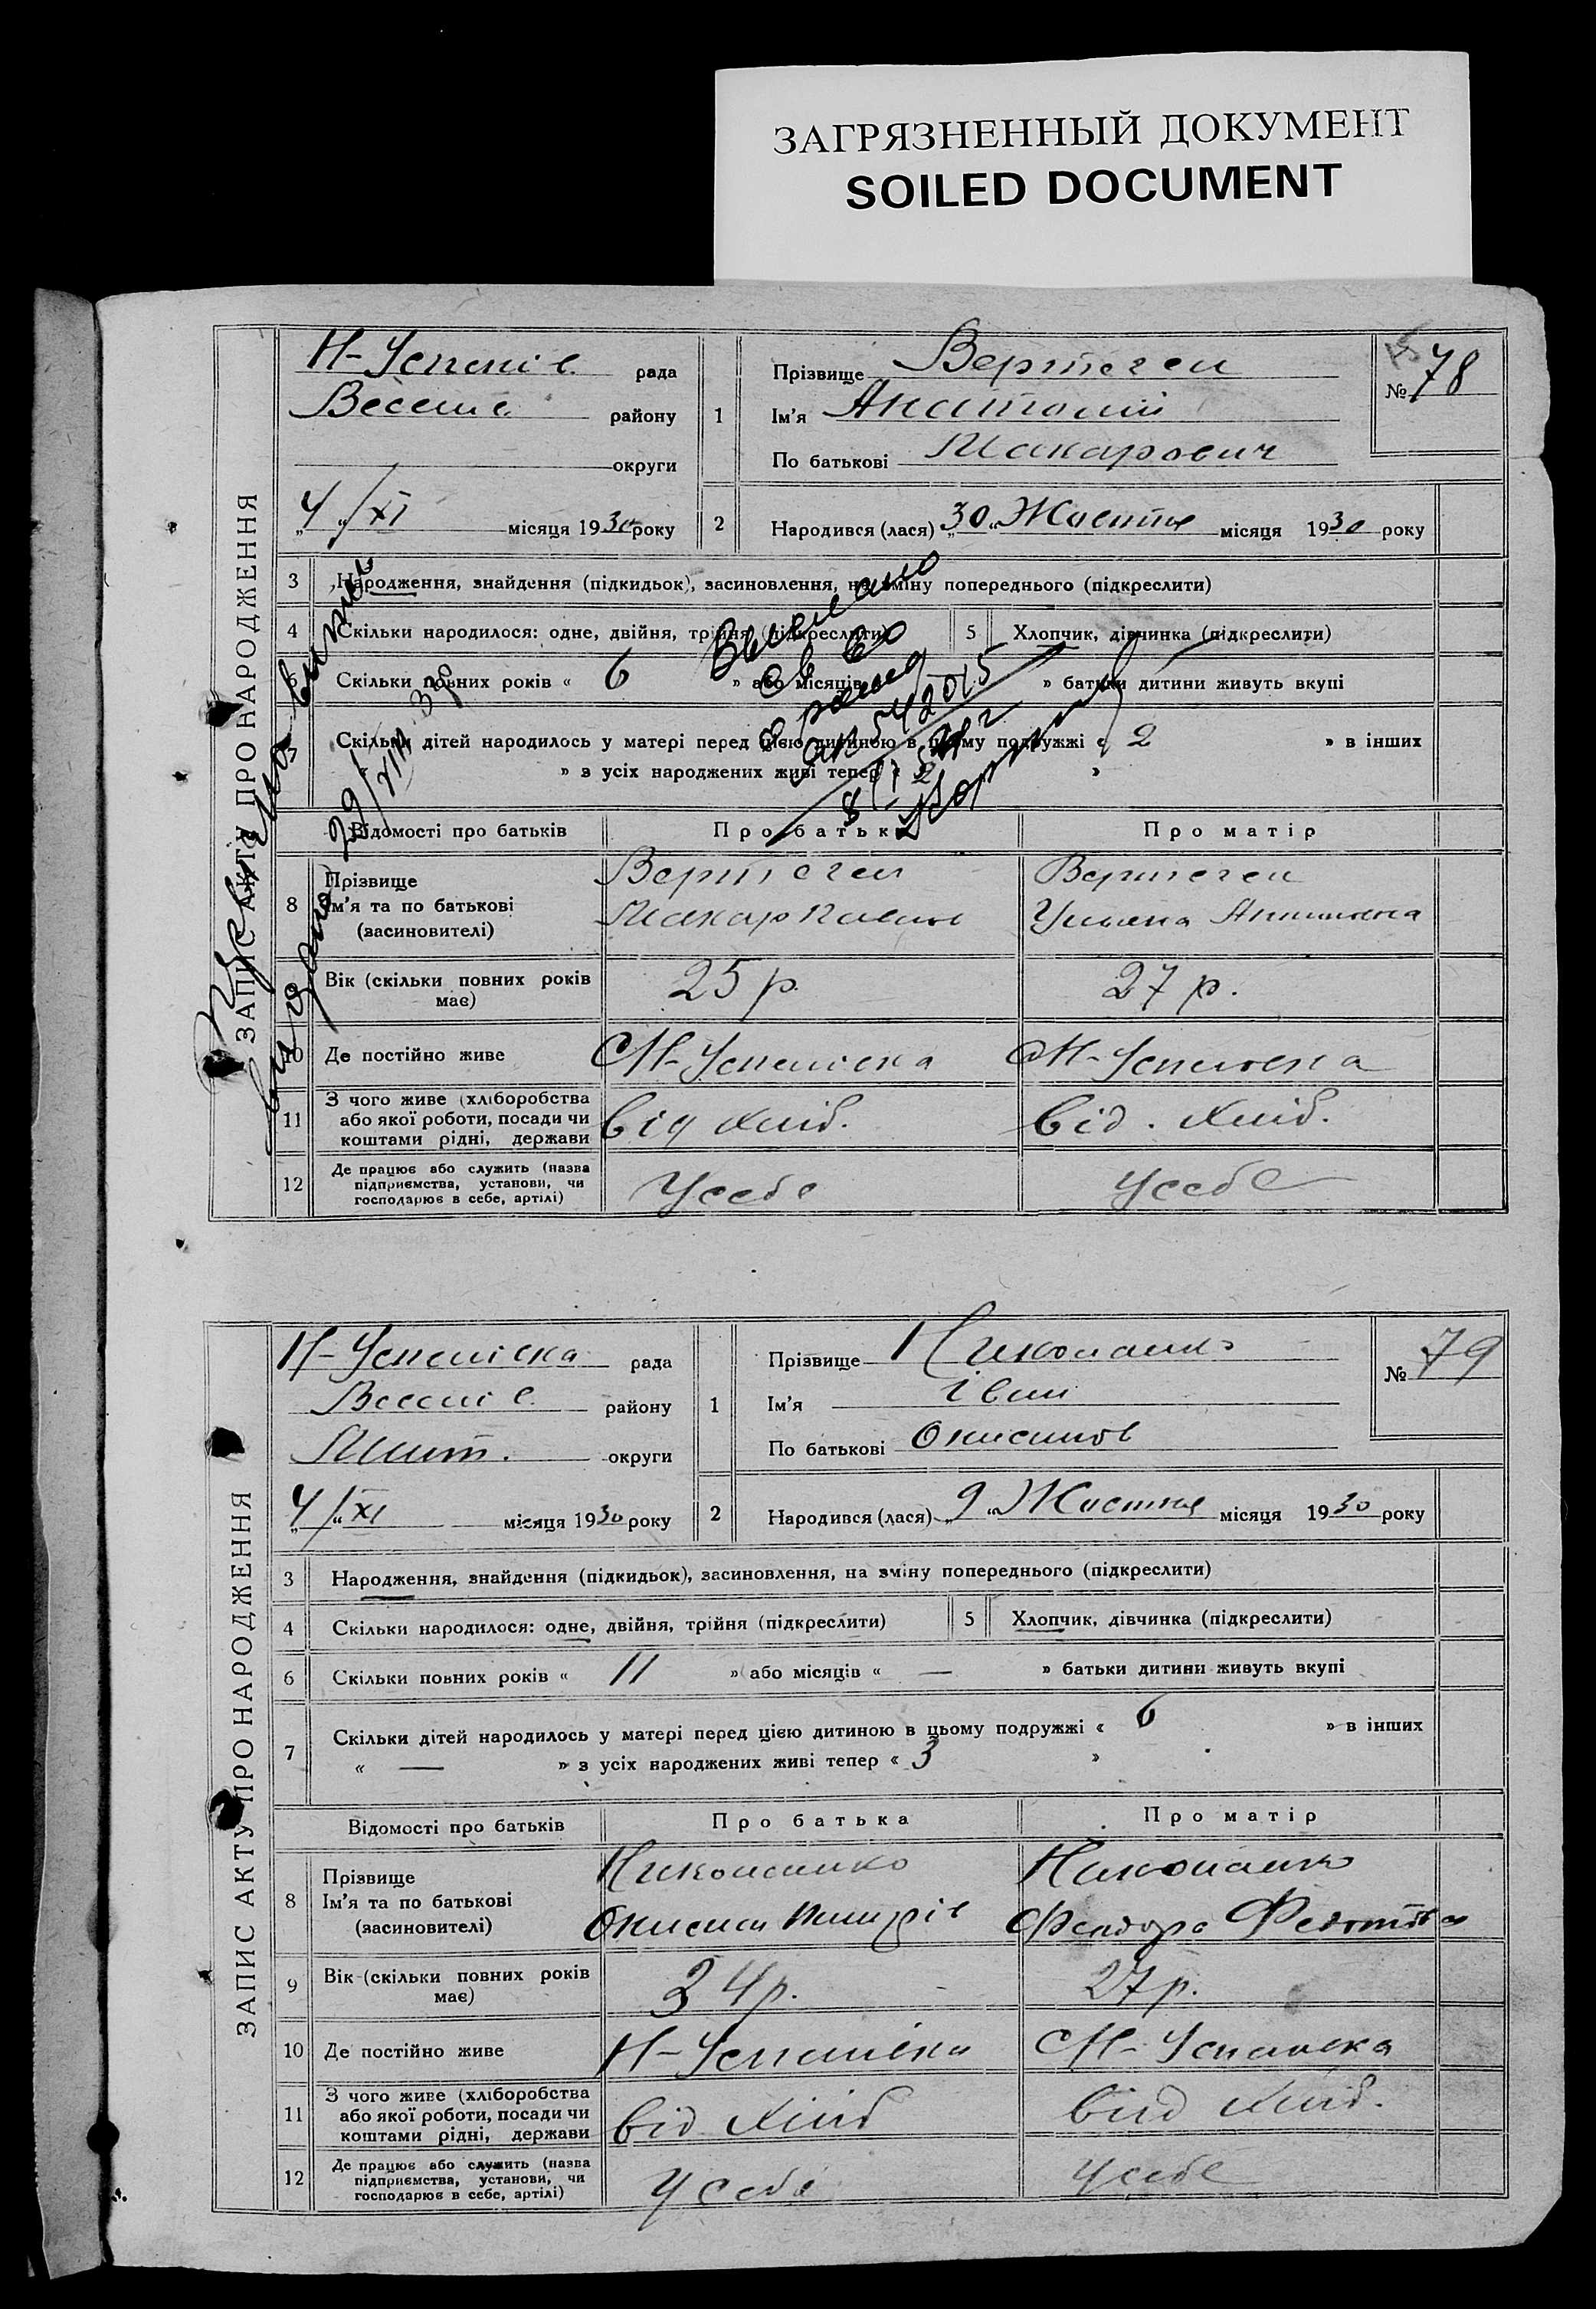 ЗАГРЯЗНЕННЫЙ ДОКУМЕНТ
SOILED DOCUMENT
ЗАПИС АКТУ ПРО НАРОДЖЕННЯ
Н-Успенів. рада
Весели. району
округи
4/XI місяця 1930 року
1
Прізвище Вертегел
Ім'я Анатолий
По батькові Макарович
№ 78
2
Народився (лася) „30“ Жовтня місяця 1930 року
3 Народження, знайдення (підкидьок), засиновлення, на зміну попереднього (підкреслити)
4 Скільки народилося: одне, двійня, трійня (підкреслити)
5 Хлопчик, дівчинка (підкреслити)
6 Скільки повних років « 6 » або місяців » батьки дитини живуть вкупі
7 Скільки дітей народилось у матері перед цією дитиною в цьому подружжі « 2 » в інших
» з усіх народжених живі тепер « 2 »
Відомості про батьків Про батька Про матір
8 Прізвище
Ім'я та по батькові
(засиновителі)
Вертегел
Макар Павлов
Вертегел
Уляна
Вік (скільки повних років має) 25 р. 27 р.
10 Де постійно живе Н-Успенівка Н-Успенівка
11 З чого живе (хліборобства
або якої роботи, посади чи
коштами рідні, держави
від хліб. від. хліб.
12 Де працює або служить (назва
підприємства, установи, чи
господарює в себе, артілі)
У себе У себе
ЗАПИС АКТУ ПРО НАРОДЖЕННЯ
Н-Успенівка рада
Веселів. району
Мит. округи
4/XI місяця 1930 року
1
Прізвище Николаенко
Ім'я Іван
По батькові Онисимов
№ 79
2
Народився (лася) „9“ Жовтня місяця 1930 року
3 Народження, знайдення (підкидьок), засиновлення, на зміну попереднього (підкреслити)
4 Скільки народилося: одне, двійня, трійня (підкреслити)
5 Хлопчик, дівчинка (підкреслити)
6 Скільки повних років « 11 » або місяців « — » батьки дитини живуть вкупі
7 Скільки дітей народилось у матері перед цією дитиною в цьому подружжі « 6 » в інших
« — » з усіх народжених живі тепер « 3 »
Відомості про батьків Про батька Про матір
8 Прізвище
Ім'я та по батькові
(засиновителі)
Николаенко
Онисим
Николаенко
Феодора Федотовна
9 Вік (скільки повних років має) 34 р. 27 р.
10 Де постійно живе Н-Успенівка Н-Успенівка
11 З чого живе (хліборобства
або якої роботи, посади чи
коштами рідні, держави
від хліб від хліб.
12 Де працює або служить (назва
підприємства, установи, чи
господарює в себе, артілі)
У себе У себе